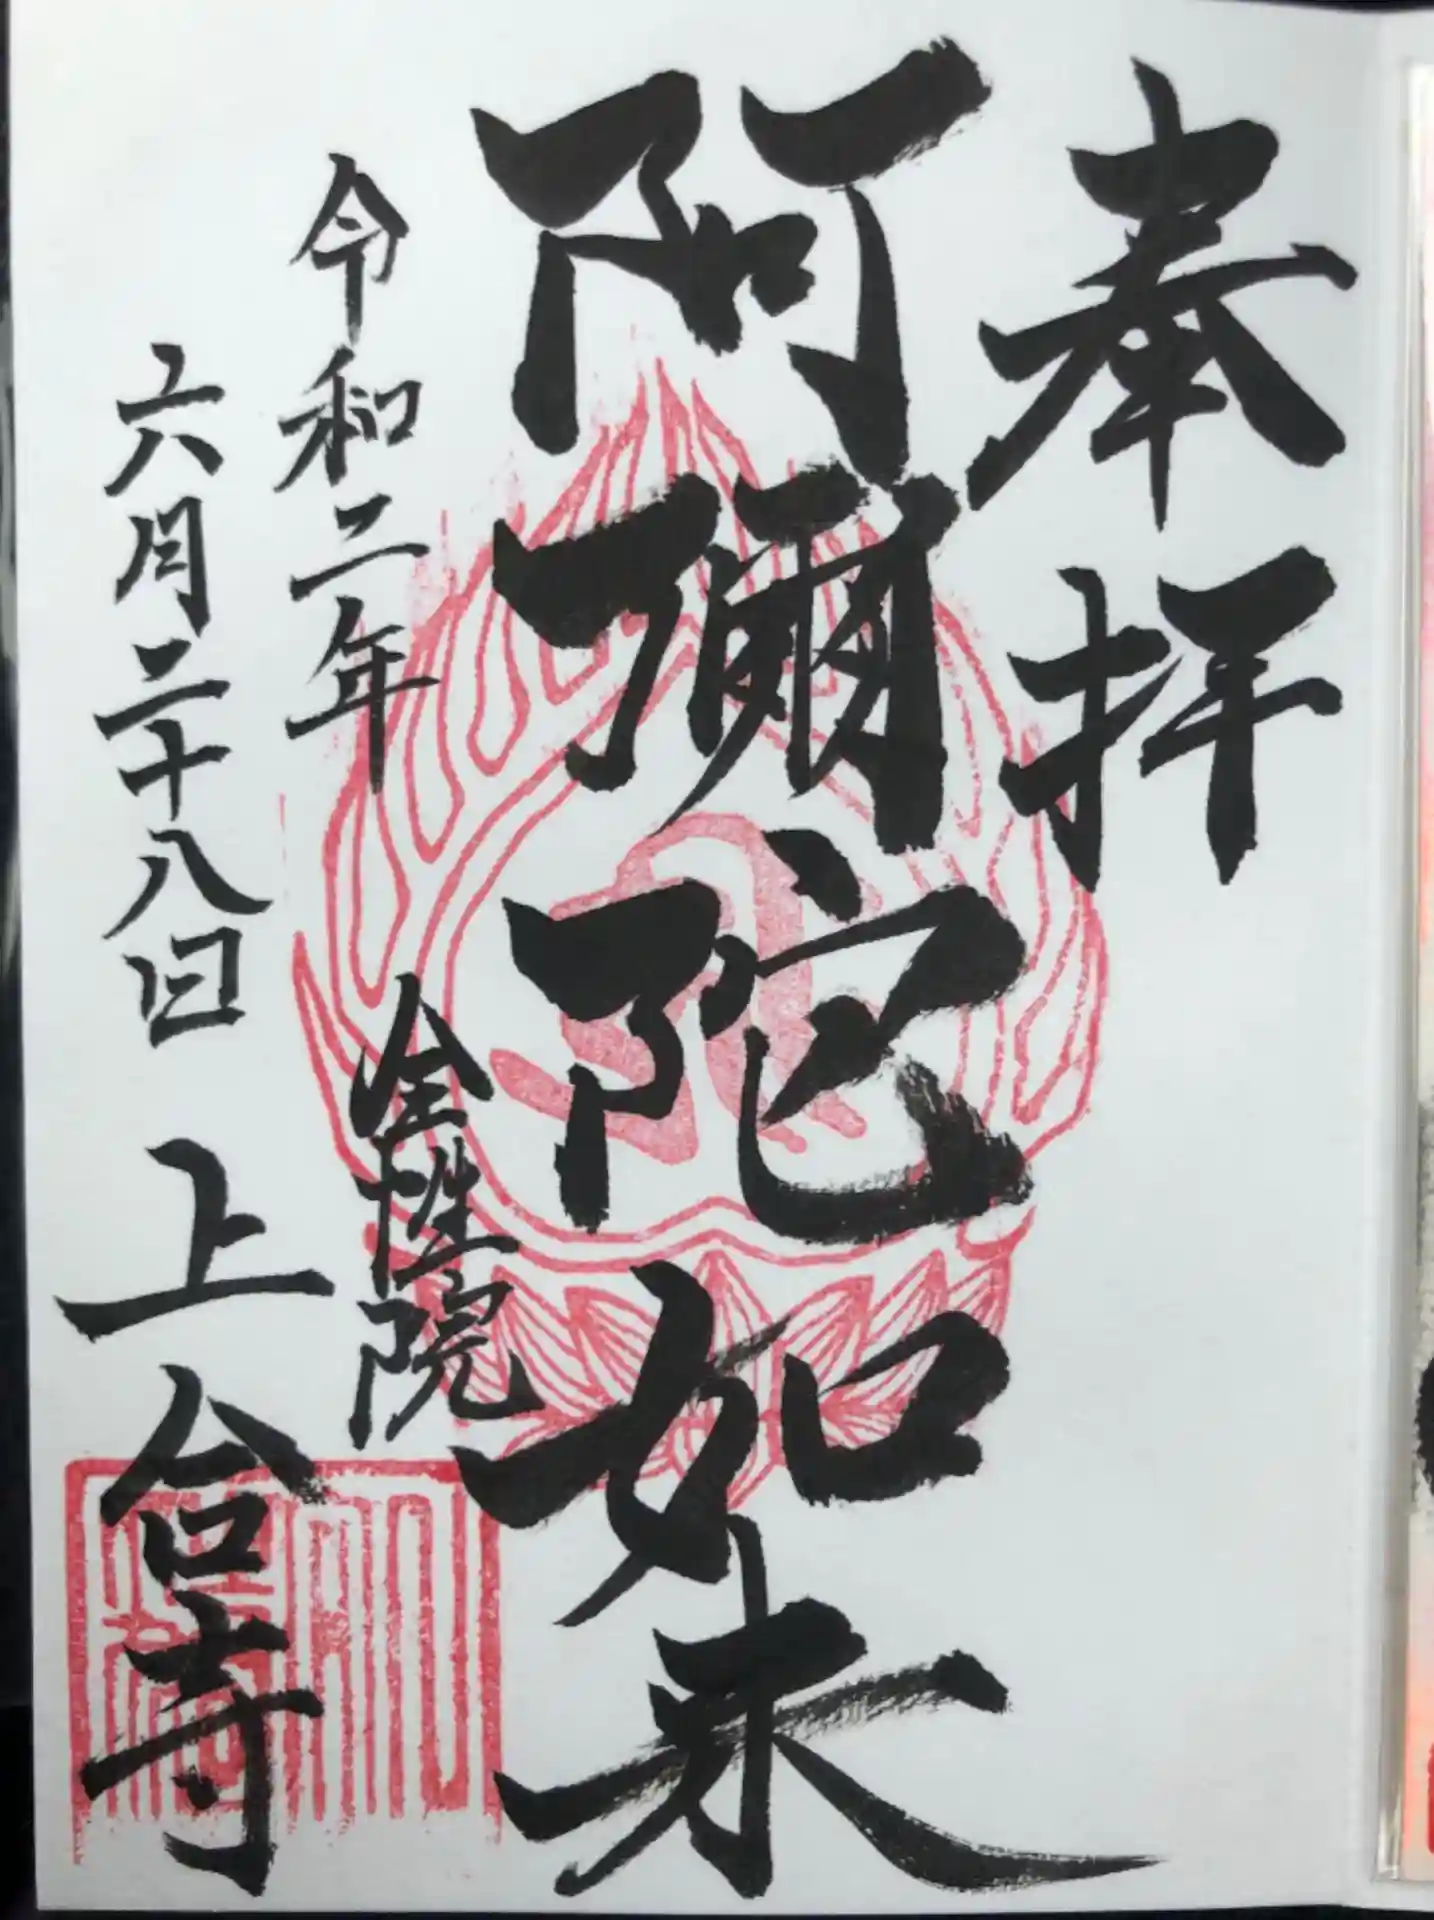 奉拝
阿彌陀如来
令和二年
六月二十八日
全性院
上合寺